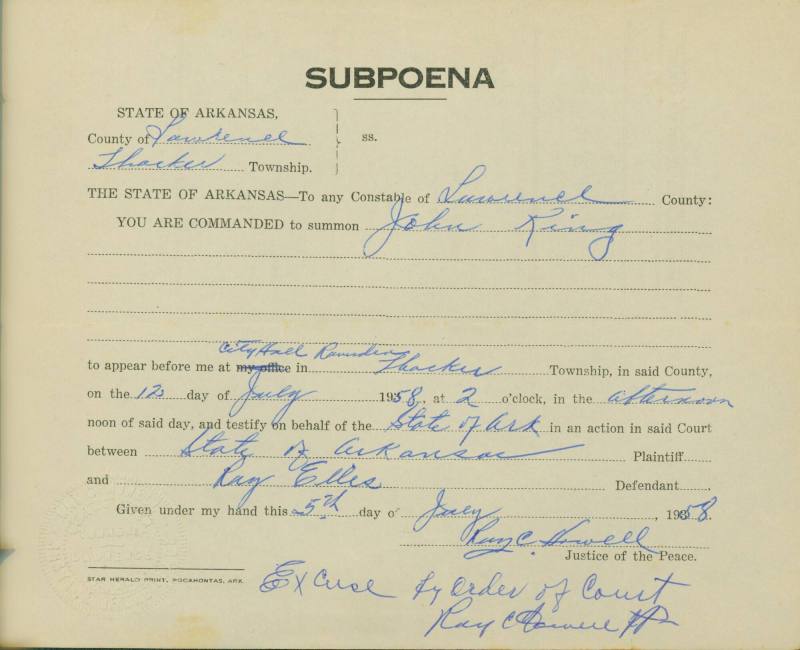 SUBPOENA
STATE OF ARKANSAS,
County of Lawrence ss.
Thacker Township.
THE STATE OF ARKANSAS—To any Constable of Lawrence County:
YOU ARE COMMANDED to summon John King
City Hall Ravenden
to appear before me at my office in Thacker Township, in said County,
on the 12 day of July 1958, at 2 o'clock, in the afternoon
noon of said day, and testify on behalf of the State of Ark in an action in said Court
between State of Arkansas Plaintiff
and Ray Elles Defendant
Given under my hand this 5th day of July, 1958.
Ray C. Howell
Justice of the Peace.
STAR HERALD PRINT, POCAHONTAS, ARK.
Excuse by order of Court
Ray C Howell JP